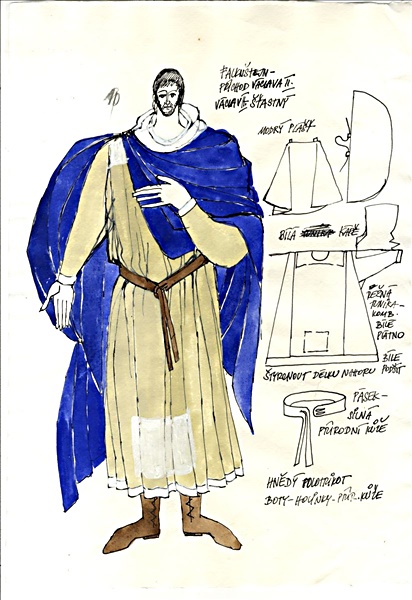 10
FALKENŠTEJN -
PŘÍCHOD VÁCLAVA II.
VÁCLAV - ŠŤASTNÝ
MODRÝ PLÁŠŤ
BÍLÁ KÁPĚ
REŽNÁ
TUNIKA -
KOMB.
BÍLÉ
PLÁTNO
BÍLE
PODŠÍT
ŠTYRONOUT DÉLKU NAHORU
PÁSEK -
SILNÁ
PŘÍRODNÍ KŮŽE
HNĚDÝ POLOTRIKOT
BOTY - HOLINKY - PŘÍR. KŮŽE